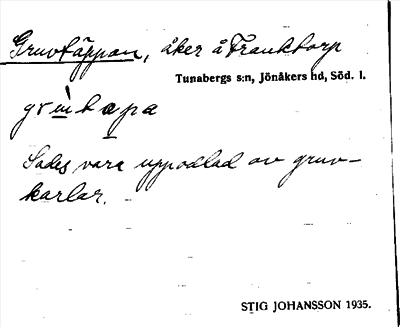 Gruvtäppan, åker å Franktorp
Tunabergs s:n, Jönåkers hd, Söd. l.
Sades vara uppodlad av gruv-
karlar.
STIG JOHANSSON 1935.